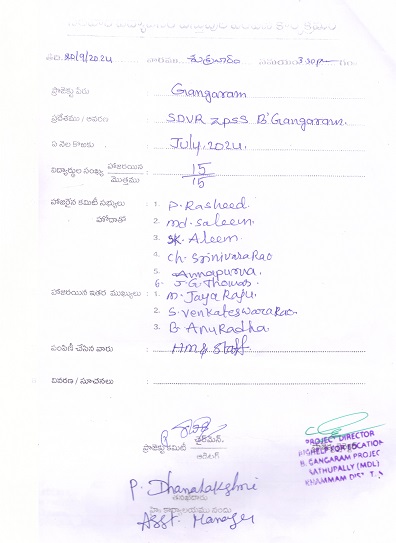 తేది. 20/9/2024 వారము శుక్రవారం సమయం 3:00 P
ప్రాజెక్టు పేరు : Gangaram
ప్రదేశము / ఆవరణ : SDVR ZPSS B'Gangaram.
ఏ నెల కొరకు : July. 2024.
విద్యార్థుల సంఖ్య హాజరయిన / మొత్తము : 15 / 15
హాజరైన కమిటీ సభ్యులు : 1. P. Rasheed.
హోదాతో 2. md. saleem.
3. SK. Aleem.
4. Ch. Srinivasa Rao
5. Annapurva.
6. J. G. Thomas.
హాజరయిన ఇతర ముఖ్యులు : 1. M. Jaya Raju.
2. S. Venkateswara Rao.
3. B. Anuradha.
పంపిణీ చేసిన వారు : HM & Staff
వివరణ / సూచనలు :
ప్రాజెక్టు కమిటీ ఛైర్మన్.
PROJECT DIRECTOR
HIGHELP FOR EDUCATION
B. GANGARAM PROJEC
SATHUPALLY (MDL)
KHAMMAM DIST. T.
P. Dhanalakshmi
Asst. Manager